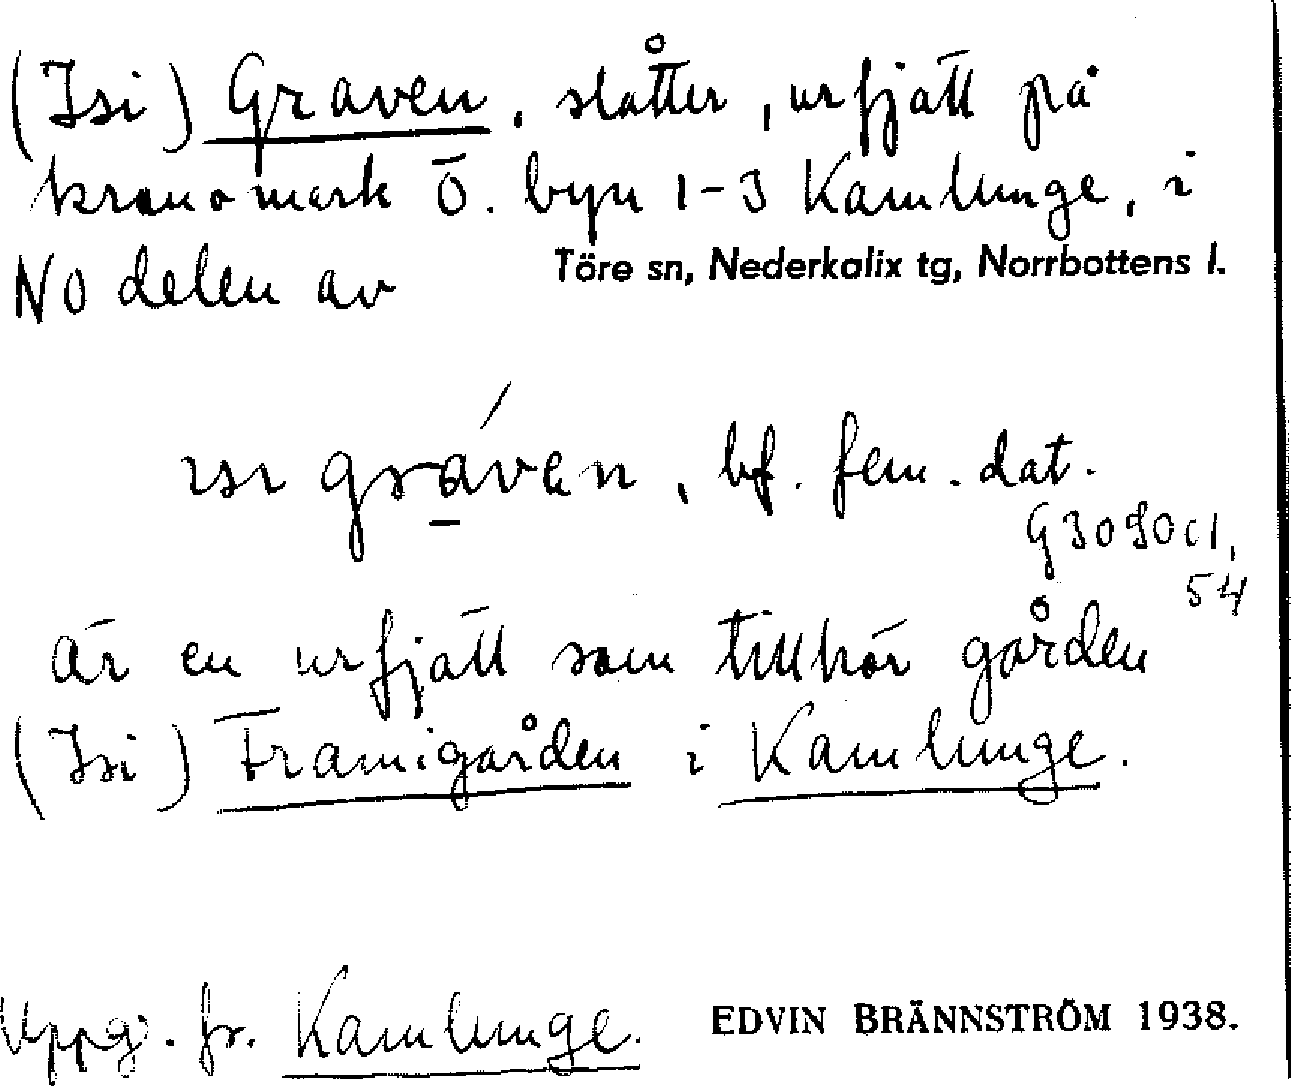 (Isi) Graven, slåtter, urfjäll på
kronomark Ö. byn 1-3 Kamlunge, i
NO delen av Töre sn, Nederkalix tg, Norrbottens l.
ɪsɪ gráven, bf. fem. dat.
54
är en urfjäll som tillhör gården
(Isi) Framigården i Kamlunge.
Uppg. fr. Kamlunge. EDVIN BRÄNNSTRÖM 1938.